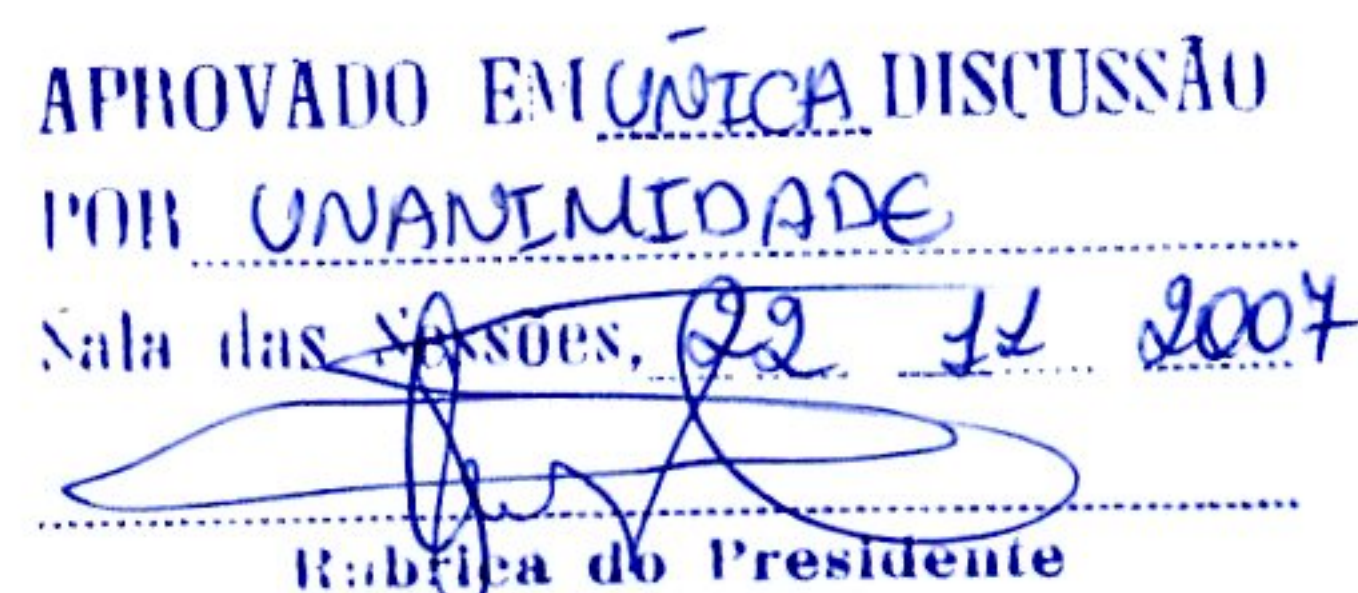 APROVADO EM ÚNICA DISCUSSÃO
POR UNANIMIDADE
Sala das Sessões, 22 11 2007
Rubrica do Presidente